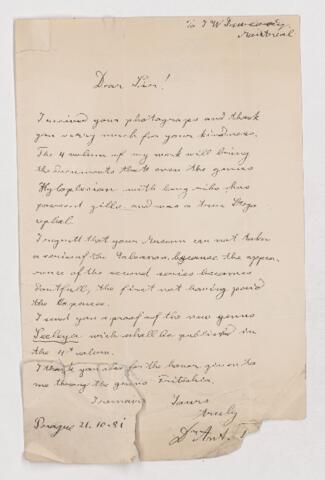 To J W
Montreal
Dear Sir!
I received your photograps and thank
you very much for your kindness.
The 4 volum of my work will bring
the documents that even the genus
Hyloplesion with long ribs has
permanent gills and was a true Stego
cephal.
I regrett that your Museum can not take
a series of the Galvanos, because the appea-
rence of the second series becomes
doutfull, the first not having paid
the expences.
I send you a proof of the new genus
Seeleya wich shall be published in
the volum.
I thank you also for the honor given to
me throug the genus Fritschia.
I remain Yours
truly
Prague 21.10.81 Dr Ant.